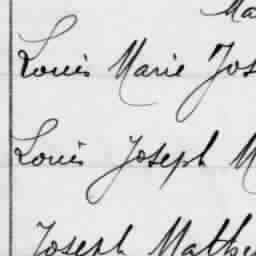 Ma
Louis Marie Jos
Louis Joseph M
Joseph Mathe